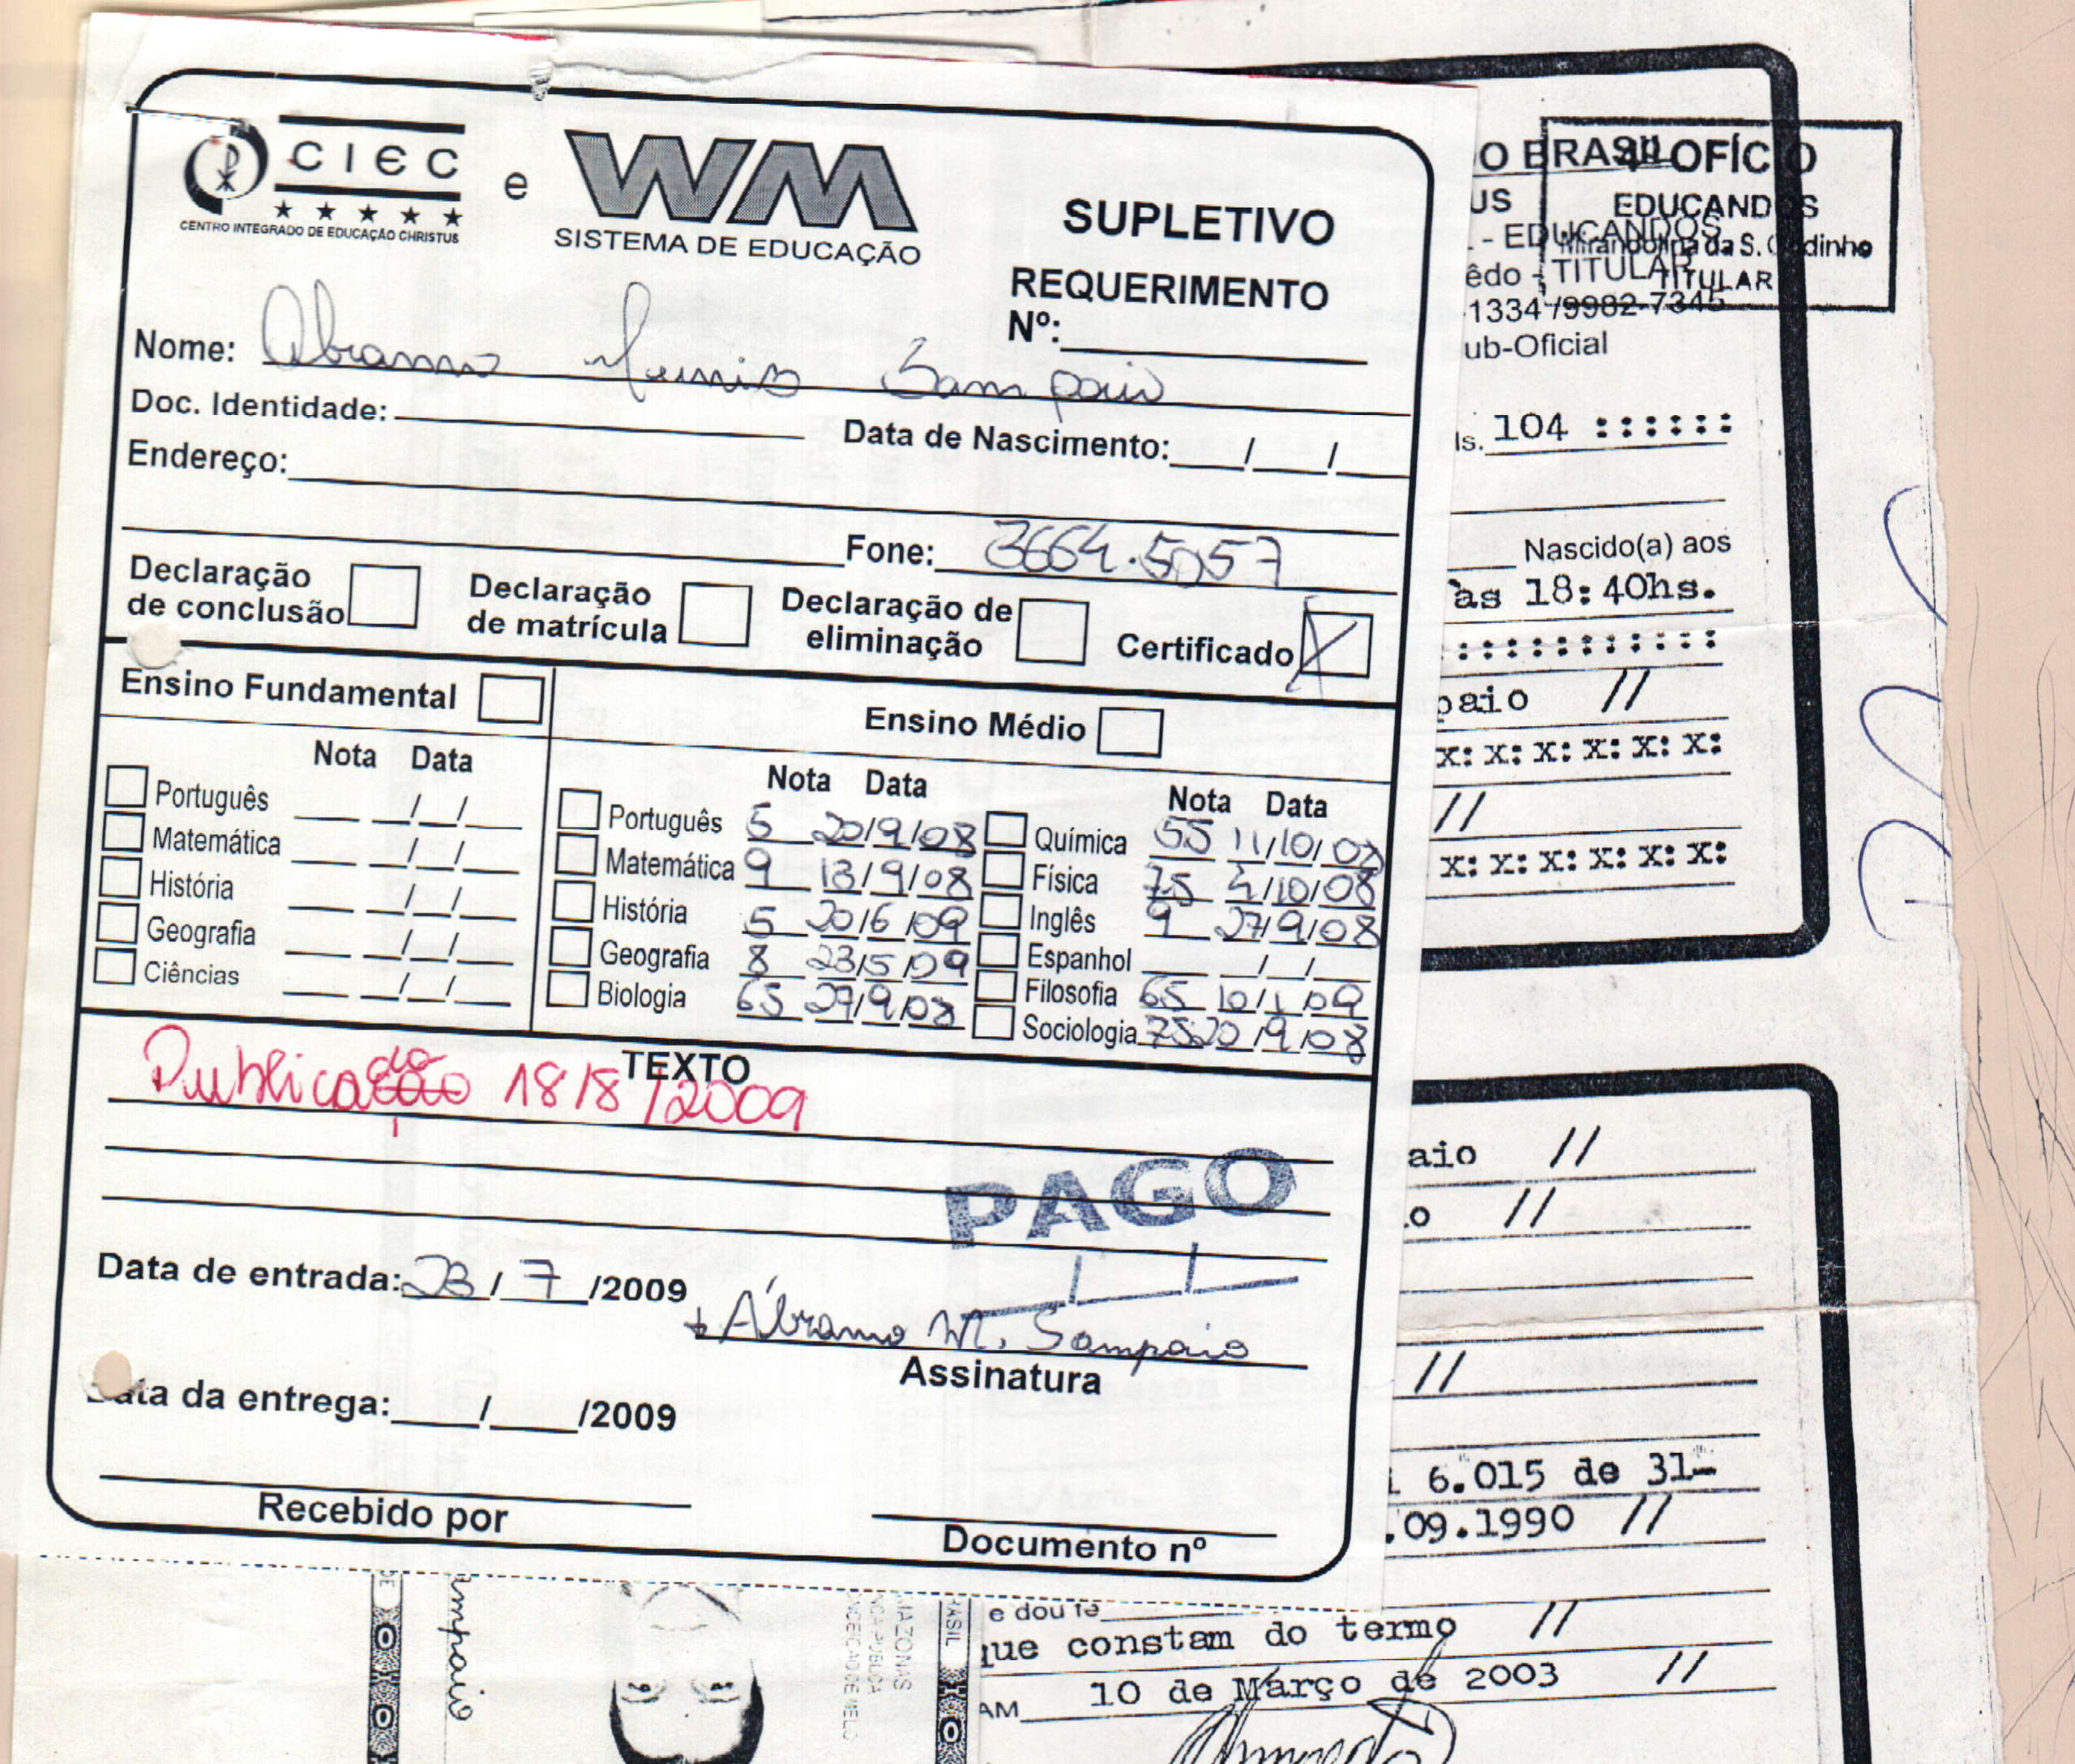 CIEC
CENTRO INTEGRADO DE EDUCAÇÃO CHRISTUS
e
WM
SISTEMA DE EDUCAÇÃO
SUPLETIVO
REQUERIMENTO
Nº:
Nome: Abramo Muniz Sampaio
Doc. Identidade:
Data de Nascimento: / /
Endereço:
Fone: 3664.5057
Declaração de conclusão
Declaração de matrícula
Declaração de eliminação
Certificado X
Ensino Fundamental
Nota Data
Português / /
Matemática / /
História / /
Geografia / /
Ciências / /
Ensino Médio
Nota Data
Português 5 20/9/08
Matemática 9 13/9/08
História 5 20/6/09
Geografia 8 23/5/09
Biologia 65 27/9/08
Nota Data
Química 55 11/10/08
Física 75 4/10/08
Inglês 9 27/9/08
Espanhol / /
Filosofia 65 10/1/09
Sociologia 75 20/9/08
TEXTO
Publicado 18/8/2009
PAGO
Data de entrada: 23/7/2009
+ Ábramo M. Sampaio
Assinatura
Data da entrega: / /2009
Recebido por
Documento nº
O BRASIL
US
- EDUCANDOS
êdo - TITULAR
1334/9982-7345
ub-Oficial
4º OFÍCIO
EDUCANDOS
Mirandolina da S. Godinho
TITULAR
ls. 104 ::::::
Nascido(a) aos
às 18:40hs.
:::::::::::
paio //
x: x: x: x: x: x:
//
x: x: x: x: x: x:
aio //
o //
//
6.015 de 31-
.09.1990 //
e dou fé
que constam do termo //
AM 10 de Março de 2003 //
ampaio